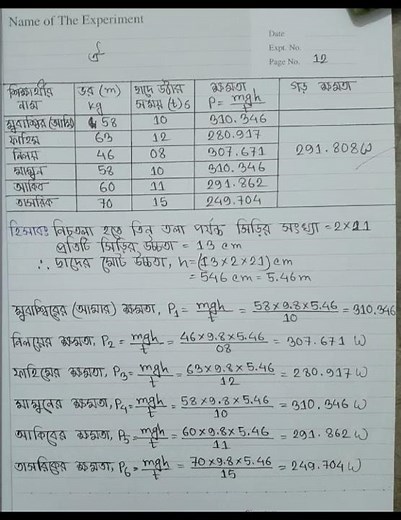 Name of The Experiment
Date
Expt. No.
Page No. 12
শিক্ষার্থীর নাম | ভর (m) kg | ছাদে উঠার সময় (t) s | ক্ষমতা P = mgh/t | গড় ক্ষমতা
58 | 10 | 310.346
ফাহিম | 63 | 12 | 280.917
নিলয় | 46 | 08 | 307.671 | 291.808 W
মামুন | 58 | 10 | 310.346
আকিব | 60 | 11 | 291.862
তাসরিক | 70 | 15 | 249.704
হিসাবঃ নিচতলা হতে তিন তলা পর্যন্ত সিঁড়ির সংখ্যা = 2×21
প্রতিটি সিঁড়ির উচ্চতা = 13 cm
∴ ছাদের মোট উচ্চতা, h = (13×2×21) cm
= 546 cm = 5.46 m
(আমার) ক্ষমতা, P₁ = mgh/t = 58×9.8×5.46/10 = 310.346
নিলয়ের ক্ষমতা, P₂ = mgh/t = 46×9.8×5.46/08 = 307.671 W
ফাহিমের ক্ষমতা, P₃ = mgh/t = 63×9.8×5.46/12 = 280.917 W
মামুনের ক্ষমতা, P₄ = mgh/t = 58×9.8×5.46/10 = 310.346 W
আকিবের ক্ষমতা, P₅ = mgh/t = 60×9.8×5.46/11 = 291.862 W
তাসরিকের ক্ষমতা, P₆ = mgh/t = 70×9.8×5.46/15 = 249.704 W